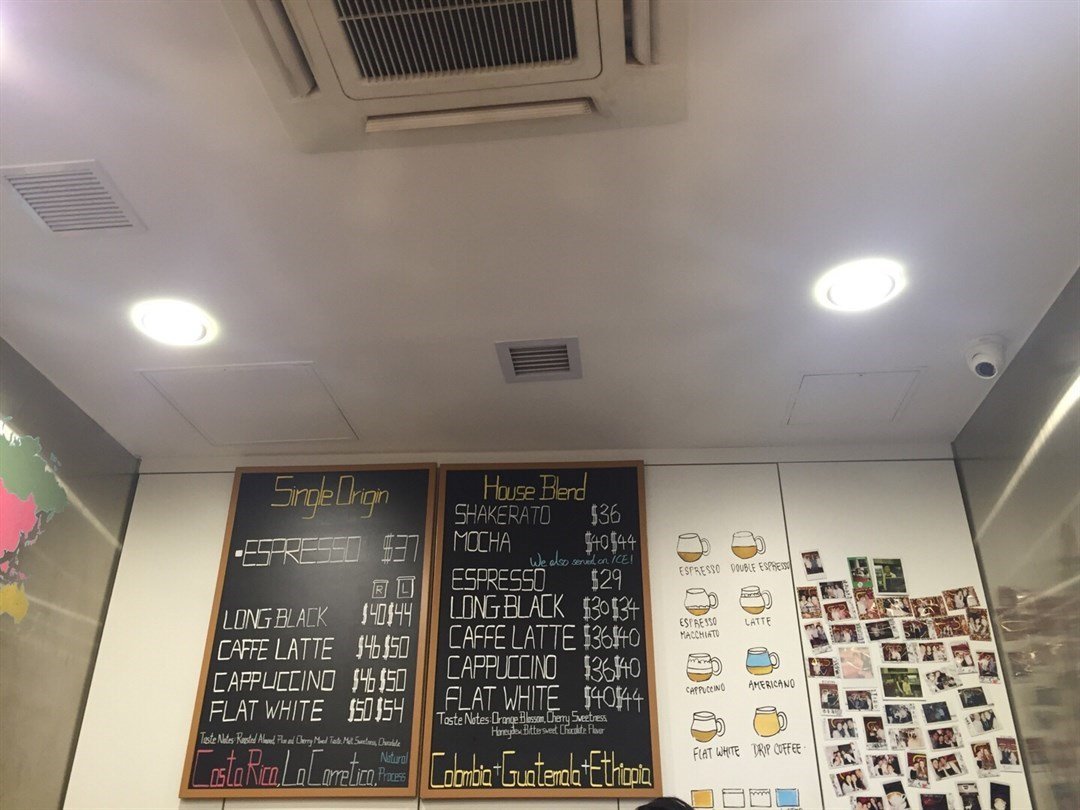 Single Origin
ESPRESSO $37
R L
LONG BLACK $40 $44
CAFFE LATTE $46 $50
CAPPUCCINO $46 $50
FLAT WHITE $50 $54
Taste Notes: Roasted Almond, Floral Cherry Mixed Taste, Malt Sweetness, Chocolate
Costa Rica, La Carretica, Natural
Process
House Blend
SHAKERATO $36
MOCHA $40 $44
We also served on ICE!
ESPRESSO $29
LONG BLACK $30 $34
CAFFE LATTE $36 $40
CAPPUCCINO $36 $40
FLAT WHITE $40 $44
Taste Notes: Orange Blossom, Cherry Sweetness,
Honeydew, Bittersweet Chocolate Flavor
Colombia + Guatemala + Ethiopia
ESPRESSO DOUBLE ESPRESSO
ESPRESSO
MACCHIATO
LATTE
CAPPUCCINO AMERICANO
FLAT WHITE DRIP COFFEE